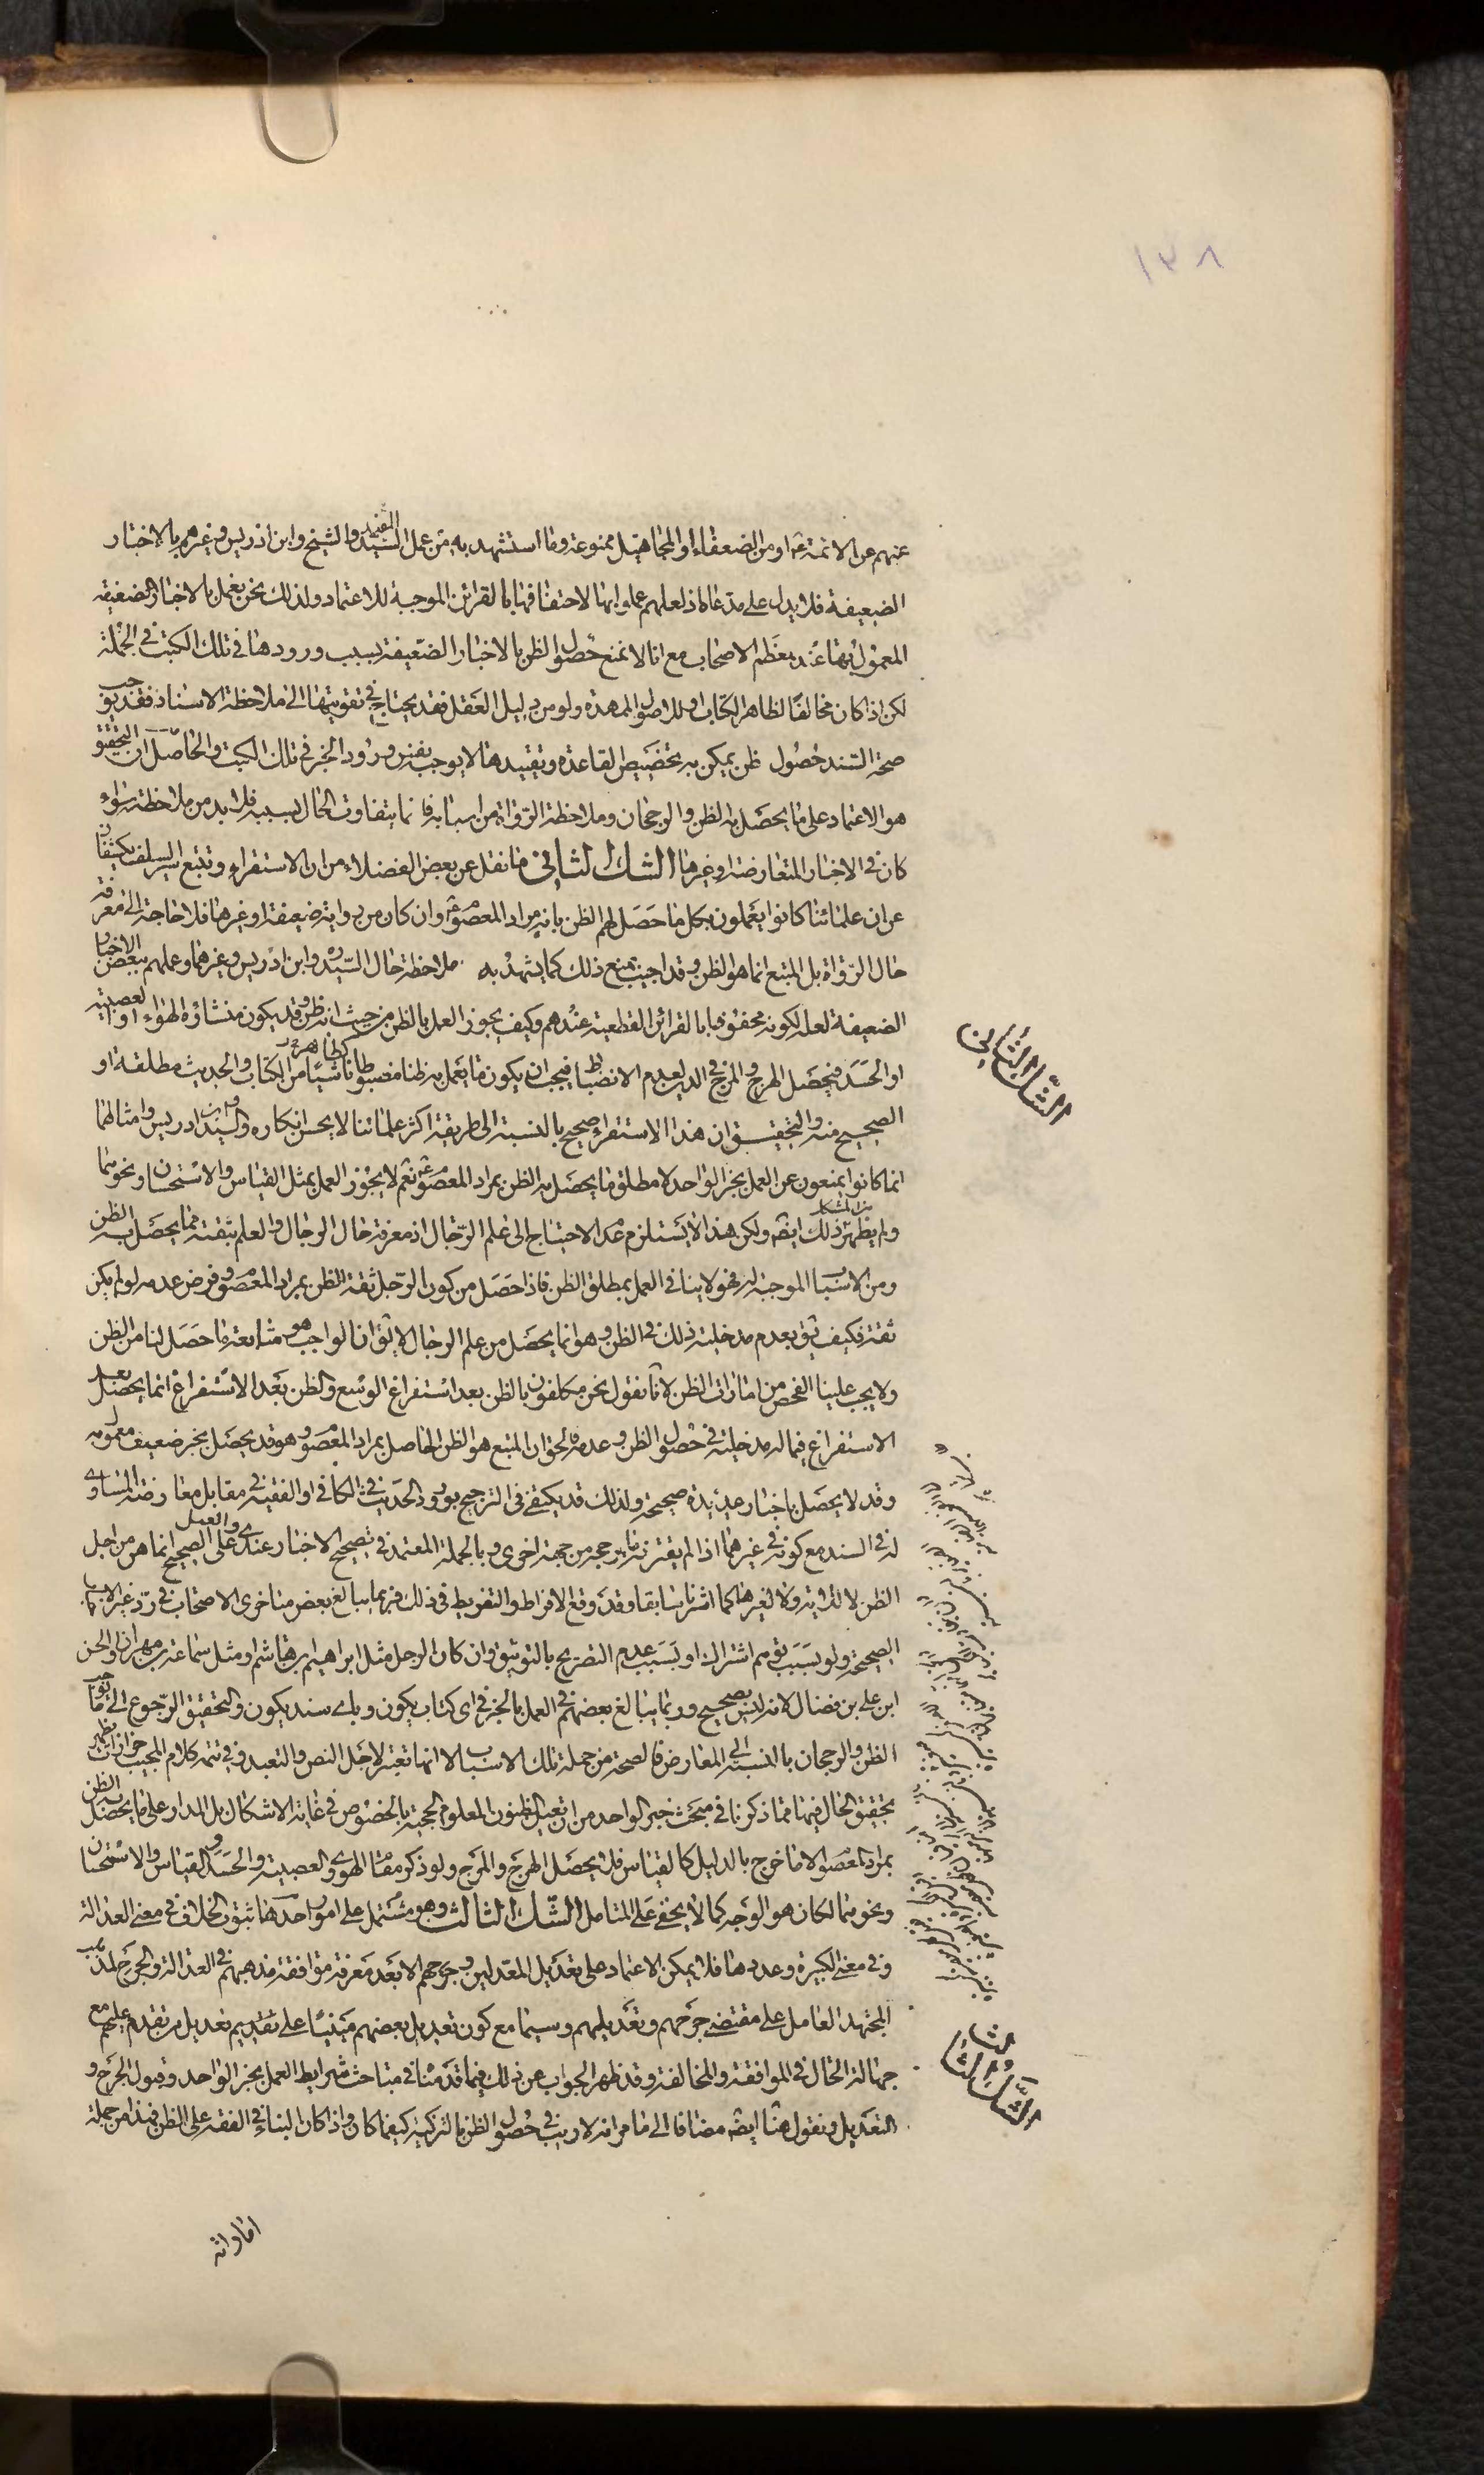 ١٣٨
عنهم عن الائمة ع او من الضعفاء او المجاهيل ممنوعة وما استشهد به من عمل السيد المفيد والشيخ وابن ادريس وغيرهم بالاخبار
الضعيفة فلا يدل على مدعاه اذ لعلهم عملوا بها لاحتفافها بالقرائن الموجبة للاعتماد ولذلك نحن نعمل بالاخبار الضعيفة
المعمول بها عند معظم الاصحاب مع انا لا نمنع حصول الظن بالاخبار الضعيفة بسبب ورودها في تلك الكتب في الجملة
لكن اذا كان مخالفا لظاهر الكتاب او للاصول الممهدة ولو من دليل العقل فقد يحتاج في تقويتها الى ملاحظة الاسناد فقد يوجب
صحة السند حصول ظن يمكن به تخصيص القاعدة وتقييدها لا يوجب نفس ورود الخبر في تلك الكتب والحاصل ان التحقيق
هو الاعتماد على ما يحصل به الظن والرجحان وملاحظة الرواة من اسبابه فانما يتفاوت الحال بسببه فلا بد من ملاحظته سواء
كان في الاخبار المتعارضة او غيرها الشك الثاني ما نقل عن بعض الفضلاء من ان الاستقراء وتتبع سير السلف يكشفان
عن ان علمائنا كانوا يعملون بكل ما حصل لهم الظن بانه مراد المعصوم ع وان كان من رواية ضعيفة او غيرها فلا حاجة الى معرفة
حال الرواة بل المتبع انما هو الظن وقد اجيب بمنع ذلك كما يشهد به ملاحظة حال السيد ره وابن ادريس وغيرهما وعملهم ببعض الاخبار
الضعيفة لعله لكونه محفوفا بالقرائن القطعية عندهم وكيف يجوز العمل بالظن من حيث انه ظن وقد يكون منشاؤه الهواء او العصبية
او الحسد فيحصل الهرج والمرج في الدين لعدم الانضباط فيجب ان يكون ما يعمل به ظنا مضبوطا ناشيا من الكتاب والحديث مطلقة او
الصحيح منه والتحقيق ان هذا الاستقراء صحيح بالنسبة الى طريقة اكثر علمائنا لا يحسن انكاره والسيد وابن ادريس وامثالهما
انما كانوا يمنعون عن العمل بخبر الواحد لا مطلق ما يحصل به الظن بمراد المعصوم ع نعم لا يجوز العمل بمثل القياس والاستحسان ونحوهما
ولم يظهر من المشكك ذلك ايضه ولكن هذا لا يستلزم عدم الاحتياج الى علم الرجال اذ معرفة حال الرجال والعلم بثقته مما يحصل به الظن
ومن الاسباب الموجبة له فهو لا ينافي العمل بمطلق الظن فاذا حصل من كون الرجل ثقة الظن بمراد المعصوم وفرض عدمه لو لم يكن
ثقة فكيف يق بعدم مدخلية ذلك في الظن وهو انما يحصل من علم الرجال لا يق ان الواجب هو متابعة ما حصل لنا من الظن
ولا يجب علينا الفحص من امارات الظن لانا نقول نحن مكلفون بالظن بعد استفراغ الوسع والظن بعد الاستفراغ انما يحصل بعد
الاستفراغ فيما له مدخلية في حصول الظن وعدمه والحق ان المتبع هو الظن الحاصل بمراد المعصوم وهو قد يحصل بخبر ضعيف معمول به
وقد لا يحصل باخبار عديدة صحيحة ولذلك قد يكتفى في الترجيح بورود الحديث في الكافي او الفقيه في مقابل معارضته المساوي
له في السند مع كونه في غيرهما اذا لم يقترنه ما يرجحه من جهة اخرى وبالجملة المعتمد في تصحيح الاخبار عندي والعمل على الصحيح انما هو من اجل
الظن لا للاية ولا لغيرها كما اشرنا سابقا وقد وقع الافراط والتفريط في ذلك فربما يبالغ بعض متاخري الاصحاب في رد غير
الصحيحة ولو بسبب توهم اشتراك او بسبب عدم التصريح بالتوثيق وان كان الرجل مثل ابراهيم بن هاشم او مثل سماعة بن مهران والحسن
ابن علي بن فضال لانه ليس بصحيح وربما يبالغ بعضهم في العمل بالخبر في اي كتاب يكون وباي سند يكون والتحقيق الرجوع الى ما يوجب
الظن والرجحان بالنسبة الى المعارض فالصحة من جملة تلك الاسباب لا انها تعتبر لاجل النص والتعبد وفي تتمة كلام المجيب
تحقيق الحال فيها مما ذكرنا في مبحث خبر الواحد من ان تعيين الظنون المعلوم الحجية بالخصوص في غاية الاشكال بل المدار على ما يحصل به الظن
بمراد المعصوم الا ما خرج بالدليل كالقياس فلا يحصل الهرج والمرج ولو ذكر مقام الهوى والعصبية والحسد القياس والاستحسان
ونحوهما لكان هو الوجه كما لا يخفى على المتامل الشك الثالث وهو مشتمل على امور احدها ثبوت الخلاف في معنى العدالة
وفي معنى الكبيرة وعددها فلا يمكن الاعتماد على تعديل المعدلين وجرحهم الا بعد معرفة موافقة مذهبهم في العدالة والجرح لمذهب
المجتهد العامل على مقتضى جرحهم وتعديلهم وسيما مع كون تعديل بعضهم مبنيا على تقديم تعديل من تقدم عليهم مع
جهالة الحال في الموافقة والمخالفة وقد ظهر الجواب عن ذلك فيما قدمنا في مباحث شرايط العمل بخبر الواحد وقبول الجرح و
التعديل ونقول هنا ايضه مضافا الى ما مر انه لا ريب في حصول الظن بالتزكية كيفما كان واذا كان البناء في الفقه على الظن فهذا من جملة
الشك الثاني
الشك الثالث
اماراته